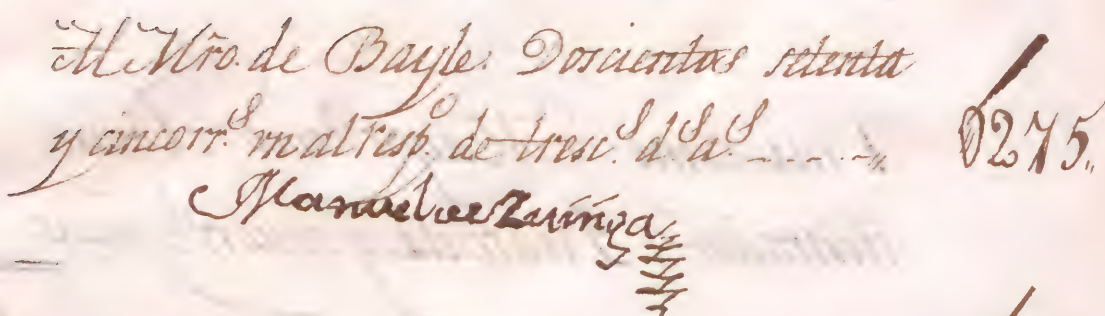 Al Mro. de Bayle. Doscientos setenta
y cinco rr.s vn al resp.o de tresc.s d.s a.s 0275,,
Manuel de Zuñiga